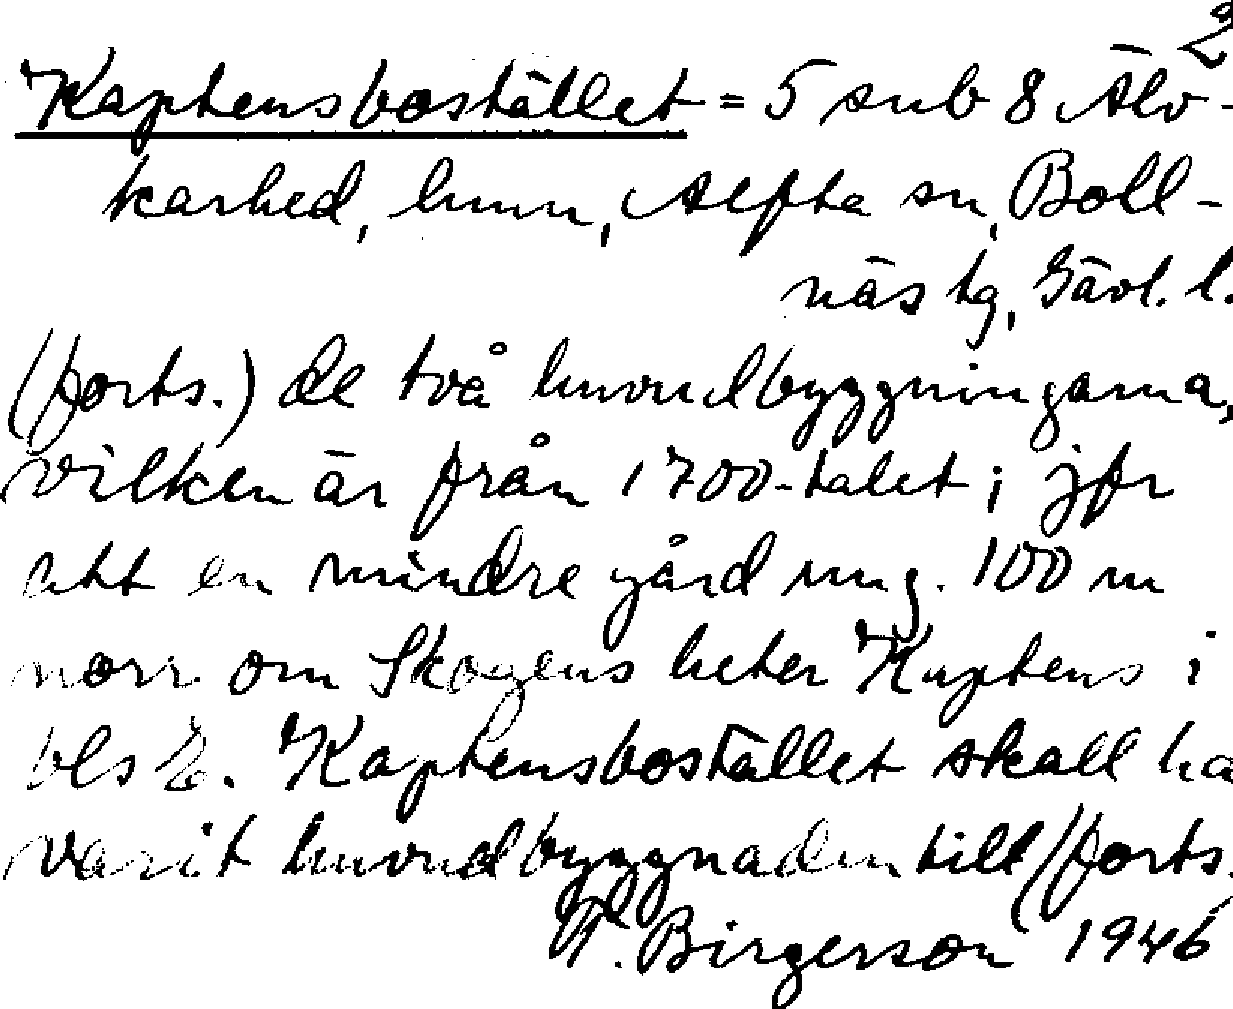 2
Kaptensbostället = 5 sub 8 Älv-
karhed, hmn, Alfta sn, Boll-
näs tg, Gävl. l.
(forts.) de två huvudbyggningarna,
vilken är från 1700-talet; jfr
att en mindre gård ung. 100 m
norr om Skogens heter Kaptens i
bls E. Kaptensbostället skall ha
varit huvudbyggnaden till (forts.
T. Birgerson 1946